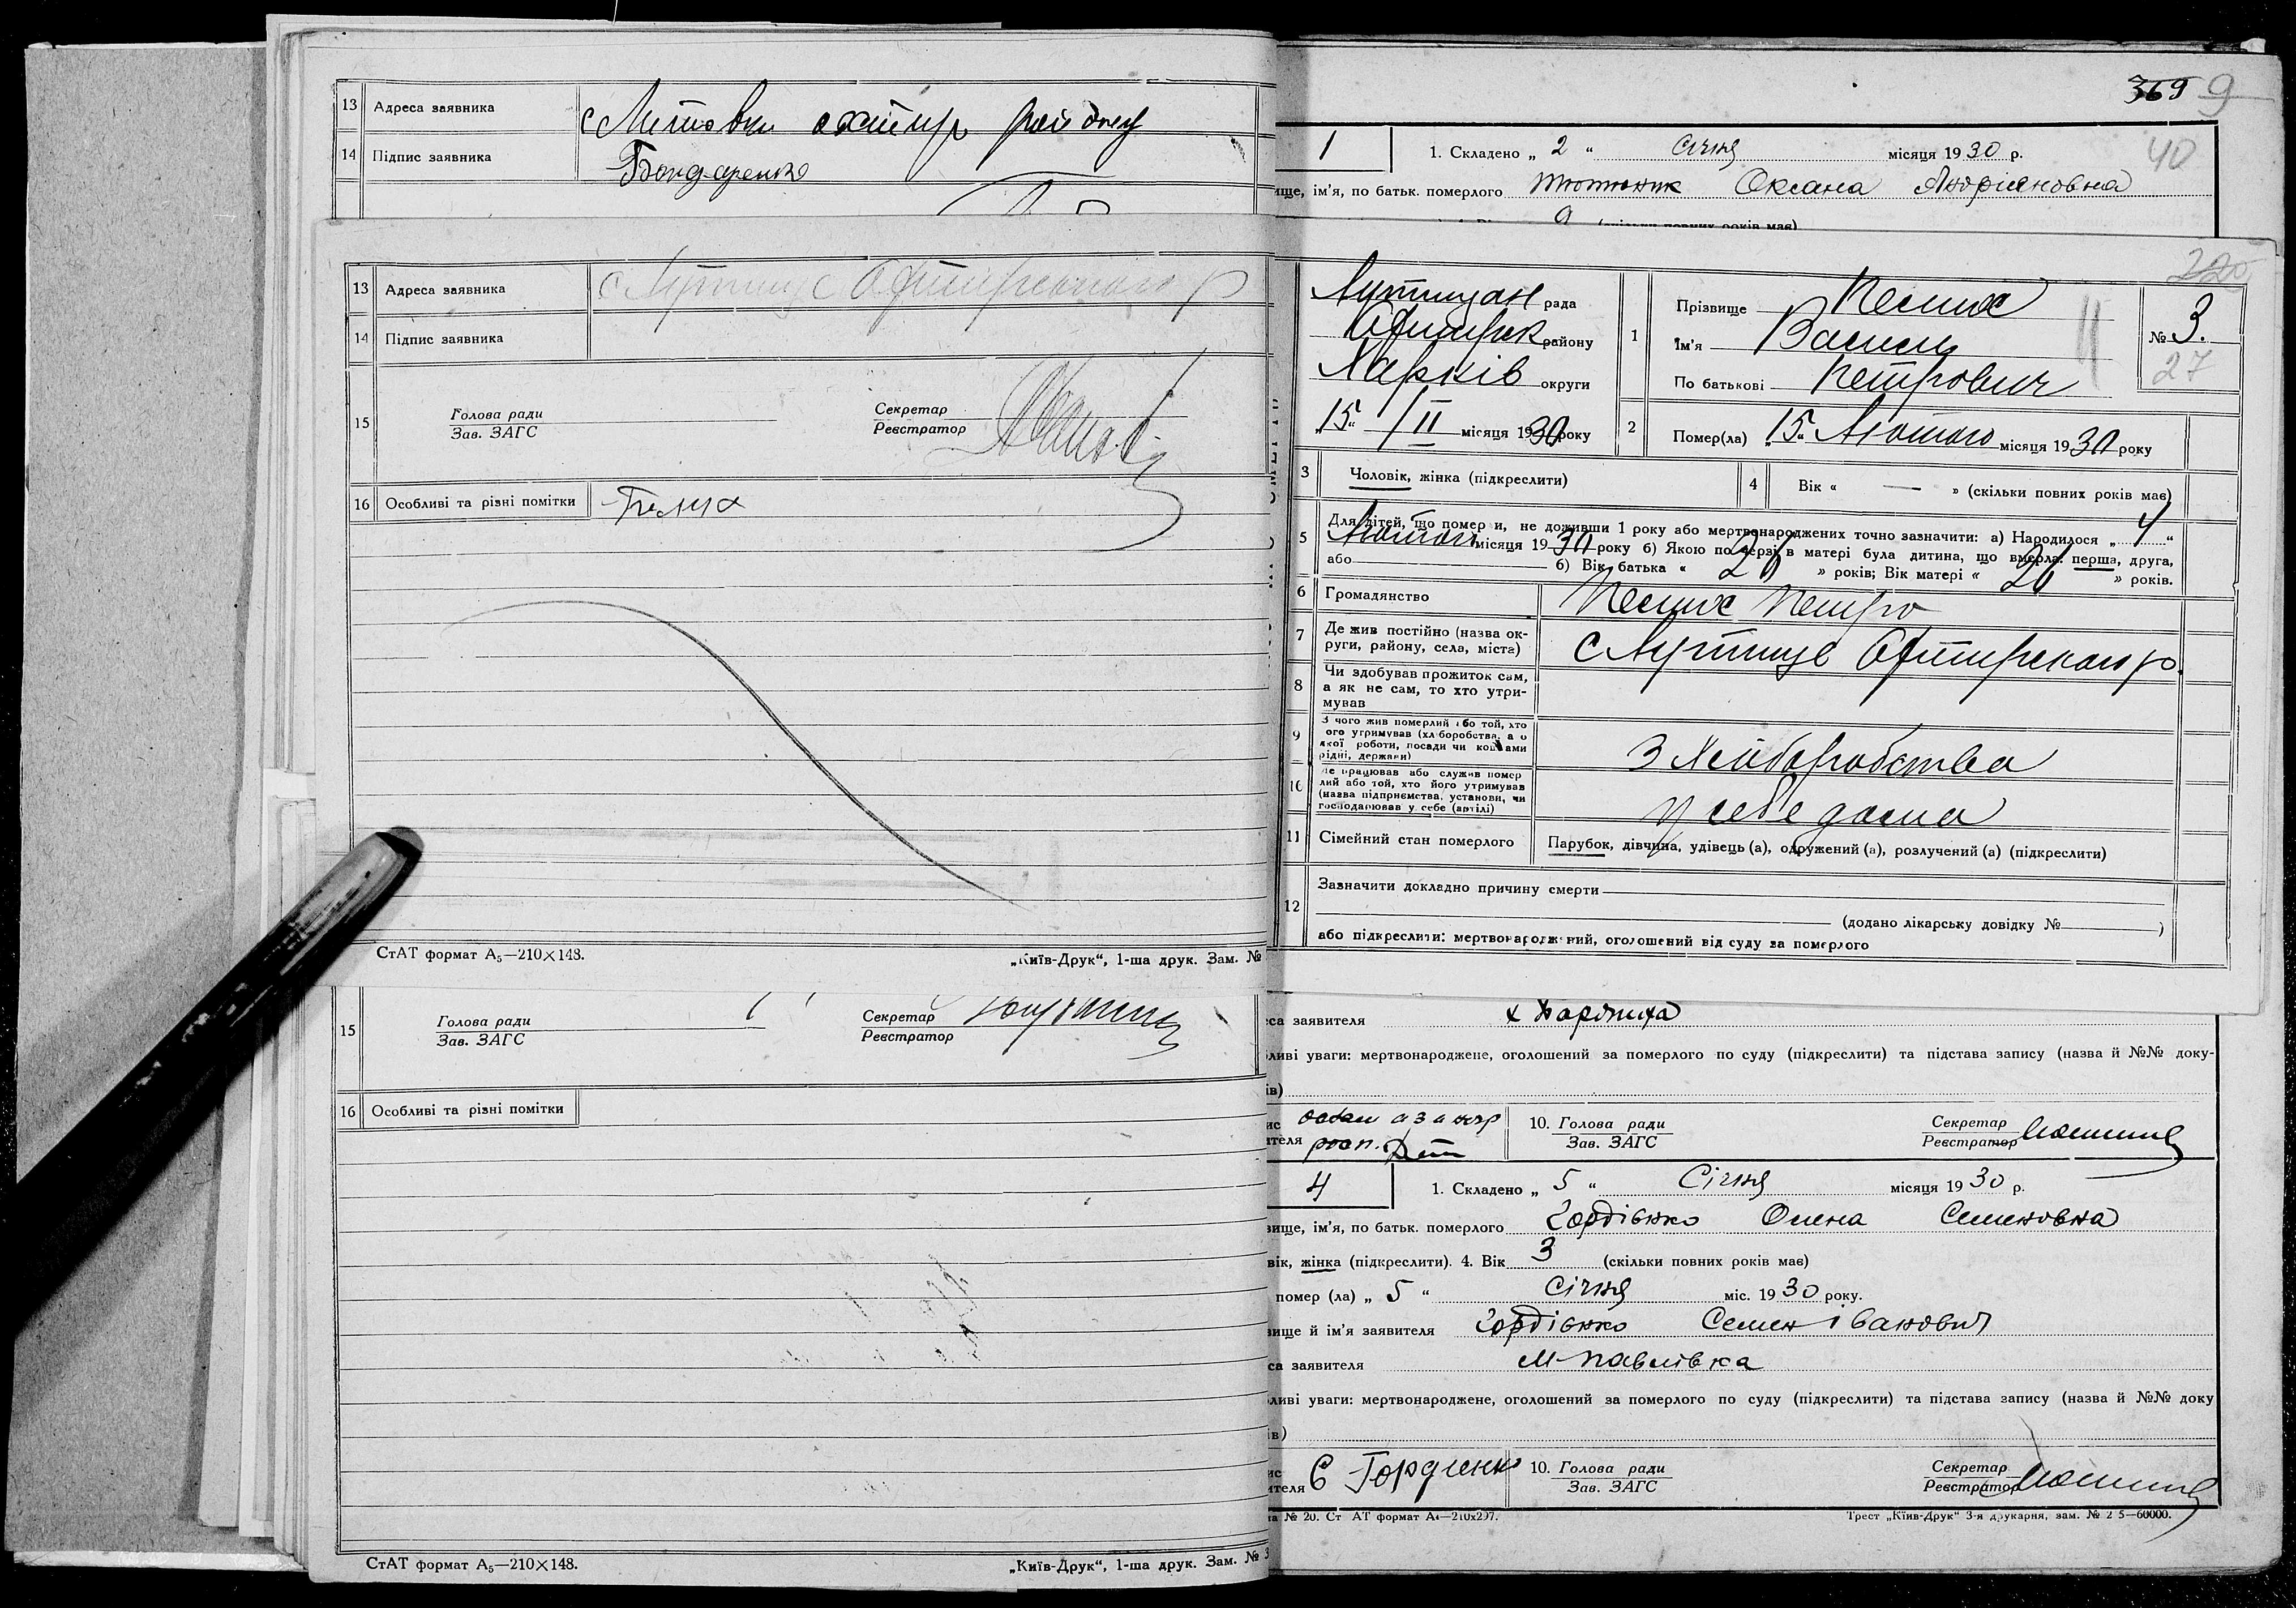 13 Адреса заявника с Литовки охтир району
14 Підпис заявника Бондаренко
13 Адреса заявника
14 Підпис заявника
15 Голова ради Секретар
Зав. ЗАГС Реєстратор
16 Особливі та різні помітки
СтАТ формат А₅—210×148.
„Київ-Друк“, 1-ша друк. Зам. №
15 Голова ради Секретар
Зав. ЗАГС Реєстратор
16 Особливі та різні помітки
СтАТ формат А₅—210×148.
„Київ-Друк“, 1-ша друк. Зам. № 3
369 9
40
1 1. Складено „ 2 “ січня місяця 1930 р.
ище, ім'я, по батьк. померлого Тютюник Оксана Андріяновна
9 (скільки повних років має)
220
рада
району
Харків округи
„15“ /II місяця 1930 року
1 Прізвище Песлих
Ім'я Василь
По батькові Петрович
№ 3.
27
2 Помер(ла) „15“ Лютого місяця 1930 року
3 Чоловік, жінка (підкреслити)
4 Вік « — » (скільки повних років має)
5 Для дітей, що померли, не доживши 1 року або мертвонароджених точно зазначити: а) Народилося „ 4 “
Лютого місяця 1930 року б) Якою по черзі в матері була дитина, що вмерла: перша, друга,
або б) Вік батька « 26 » років; Вік матері « 26 » років.
6 Громадянство Песлих Петро
7 Де жив постійно (назва ок-
руги, району, села, міста)
8 Чи здобував прожиток сам,
а як не сам, то хто утри-
мував
9 З чого жив померлий або той, хто
ого утримував (хліборобства, а о
якої роботи, посади чи коштами
рідні, держави) З Хліборобства
10 Де працював або служив помер
лий або той, хто його утримував
(назва підприємства, установи, чи
господарював у себе (артілі) у себе дома
11 Сімейний стан померлого Парубок, дівчина, удівець (а), одружений (а), розлучений (а) (підкреслити)
12 Зазначити докладно причину смерти
(додано лікарську довідку № )
або підкреслити: мертвонароджений, оголошений від суду за померлого
са заявителя
ливі уваги: мертвонароджене, оголошений за померлого по суду (підкреслити) та підстава запису (назва й №№ доку-
ів)
ис
ителя
10. Голова ради Секретар
Зав. ЗАГС Реєстратор
4 1. Складено „ 5 “ Січня місяця 1930 р.
вище, ім'я, по батьк. померлого Гордієнко Олена Семеновна
вік, жінка (підкреслити). 4. Вік 3 (скільки повних років має)
помер (ла) „ 5 “ Січня міс. 1930 року.
вище й ім'я заявителя Гордієнко Семен Іванович
са заявителя М-Павлівка
ливі уваги: мертвонароджене, оголошений за померлого по суду (підкреслити) та підстава запису (назва й №№ доку
ів)
ис
ителя Є Гордиенко
10. Голова ради Секретар
Зав. ЗАГС Реєстратор
а № 20. Ст АТ формат А₄—210х297.
Трест „Київ-Друк“ 3-я друкарня, зам. № 2 5—60000.